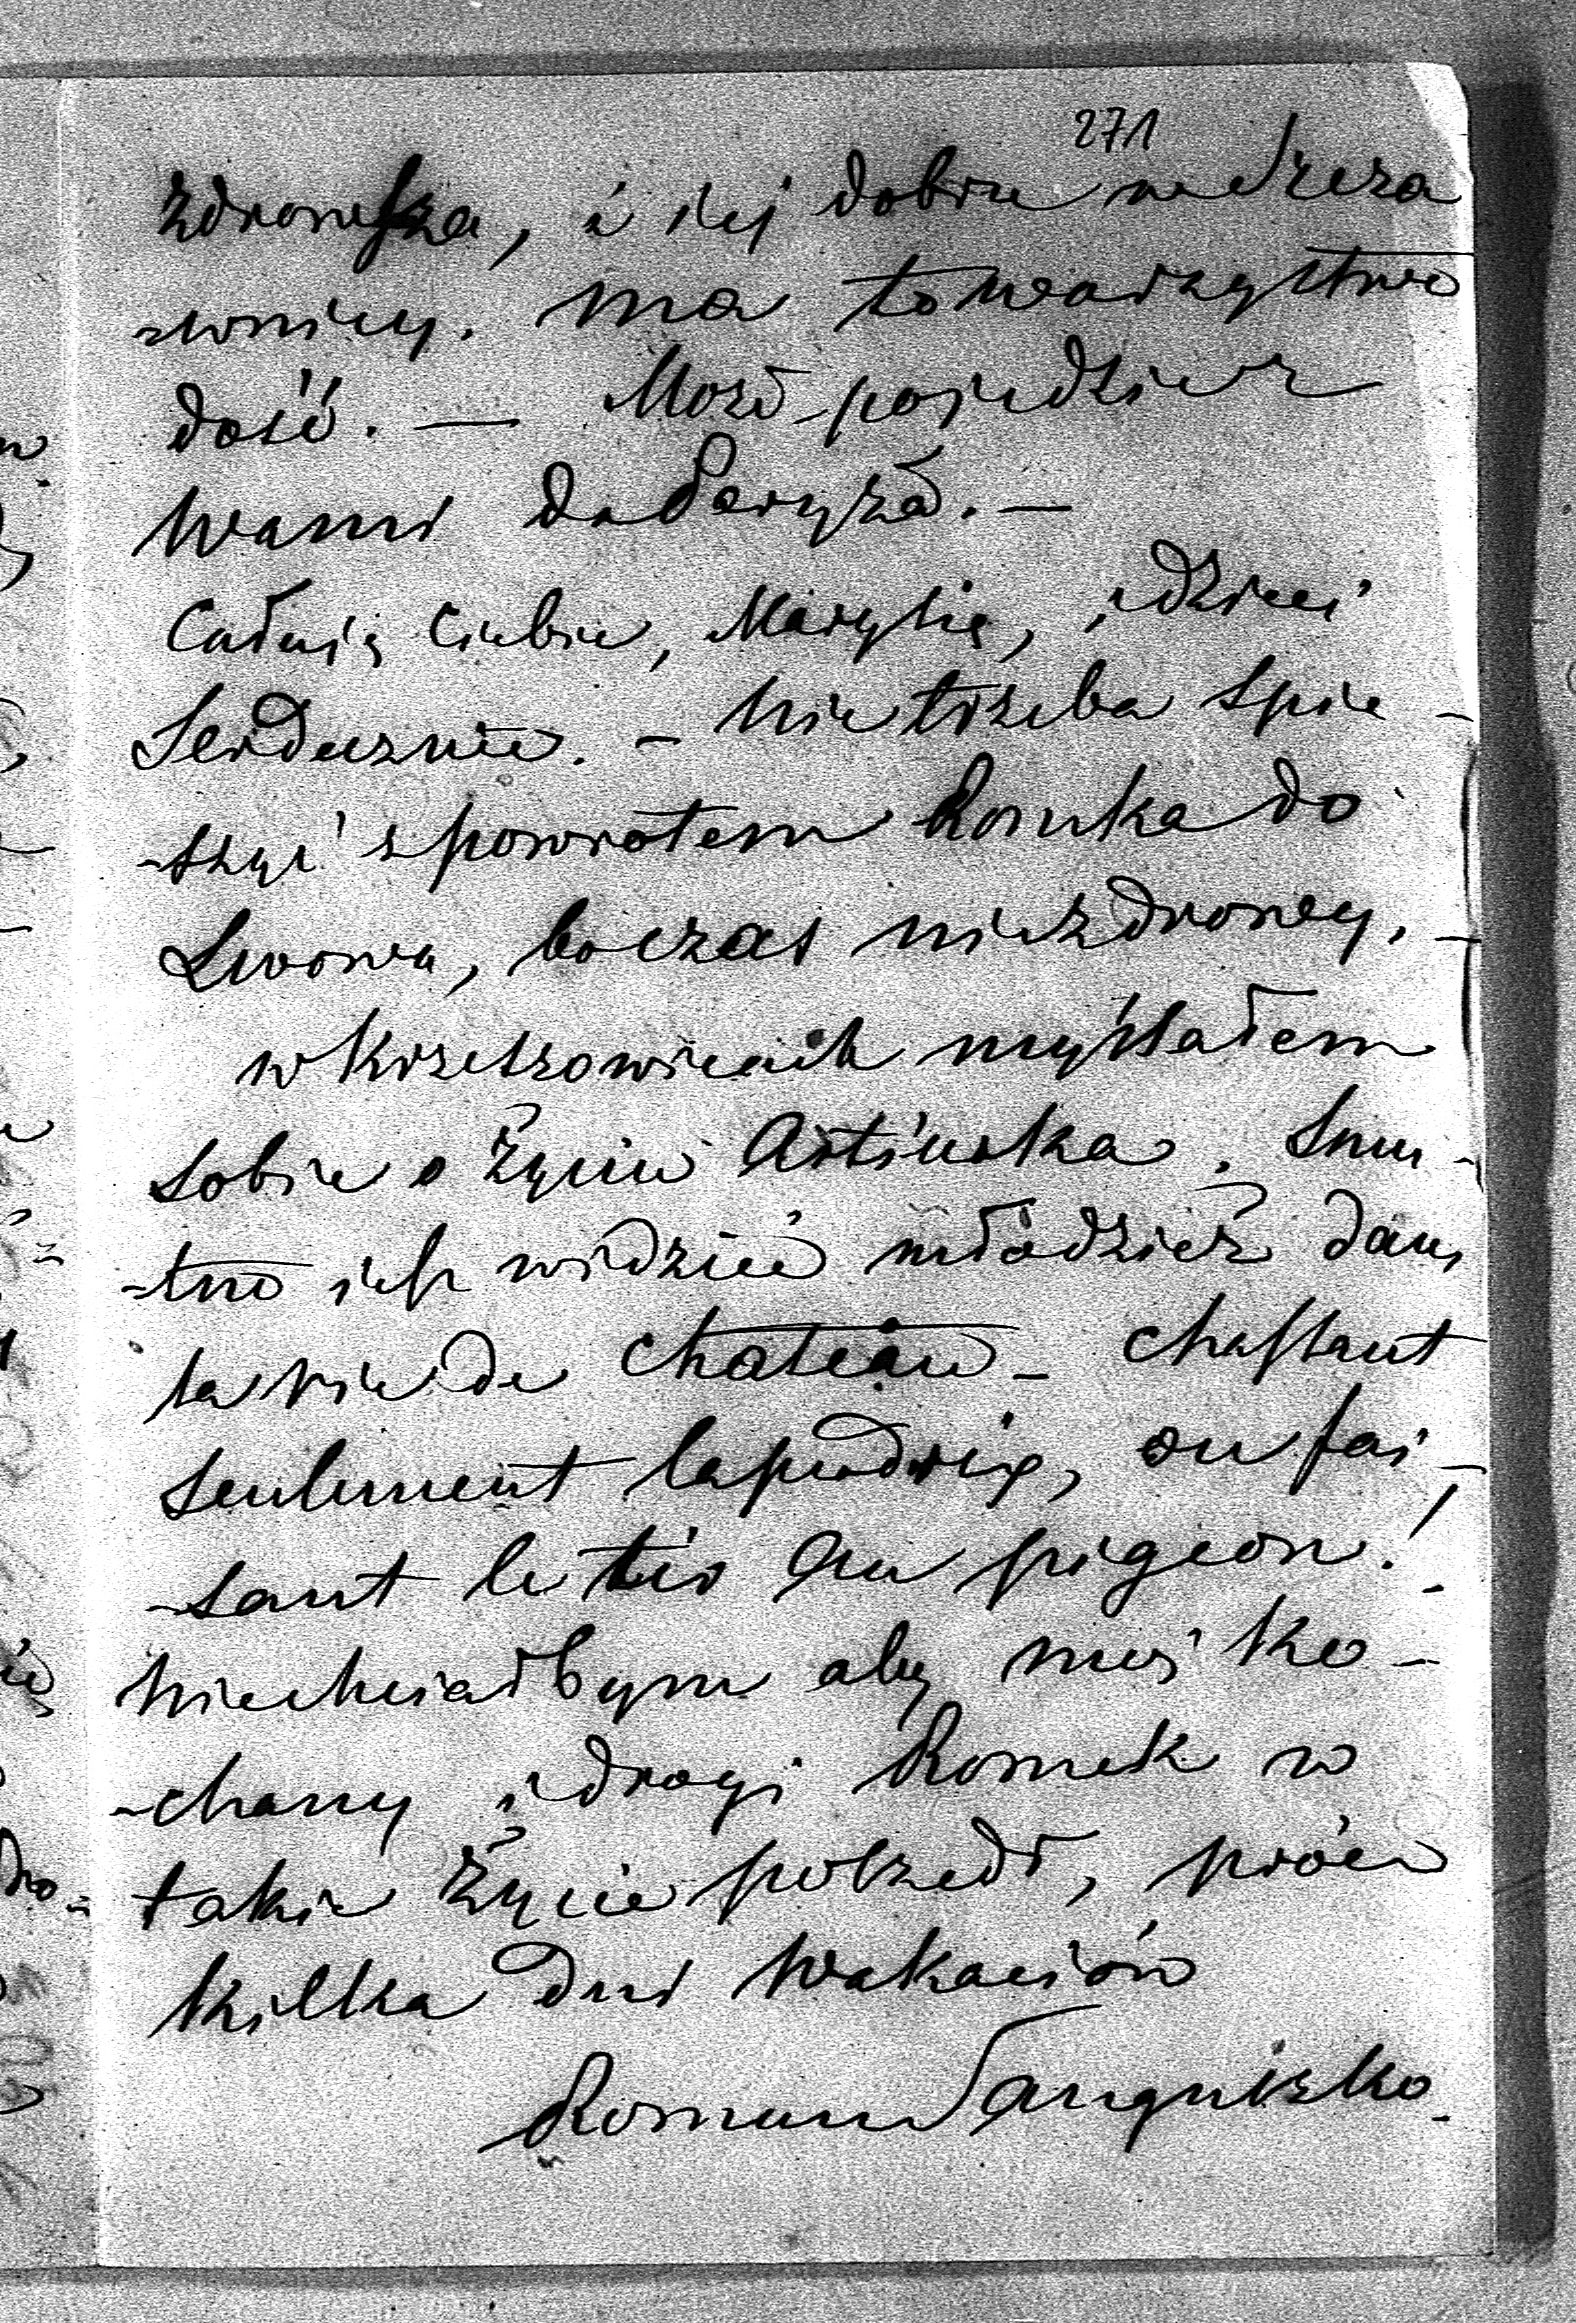 271
zdrowsza, i jej dobrze w Szcza
-wnicy. Ma towarzystwo
dość. — Może pojedzie z
Wami do Paryża. —
Całuję Ciebie, Marylię, i dzieci
Serdecznie. - Nie trzeba spie-
-szyć z powrotem Romka do
Lwowa, bo czas niezdrowy. -
w Krzeszowicach myślałem
sobie o życiu Artiurka. Smu-
-tno ich widzieć młodzież dans
la vie de chateau - chassant
seulement la perdrix, ou fai-
-sant le tir au pigeon!
Niechciałbym aby mój ko-
-chany i drogi Romek w
takie życie poszedł, prócz
kilka dni Wakación
Roman Sanguszko.